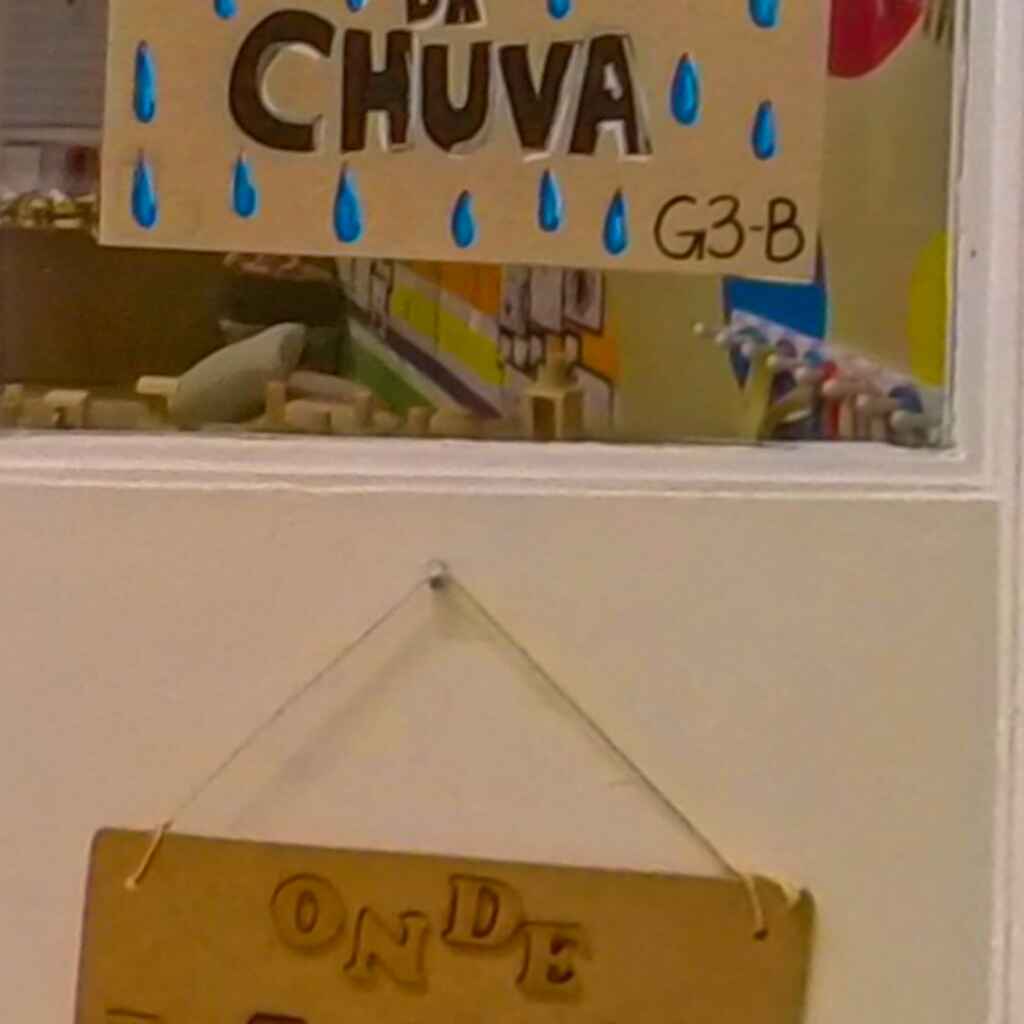 DA
CHUVA
G3-B
ONDE